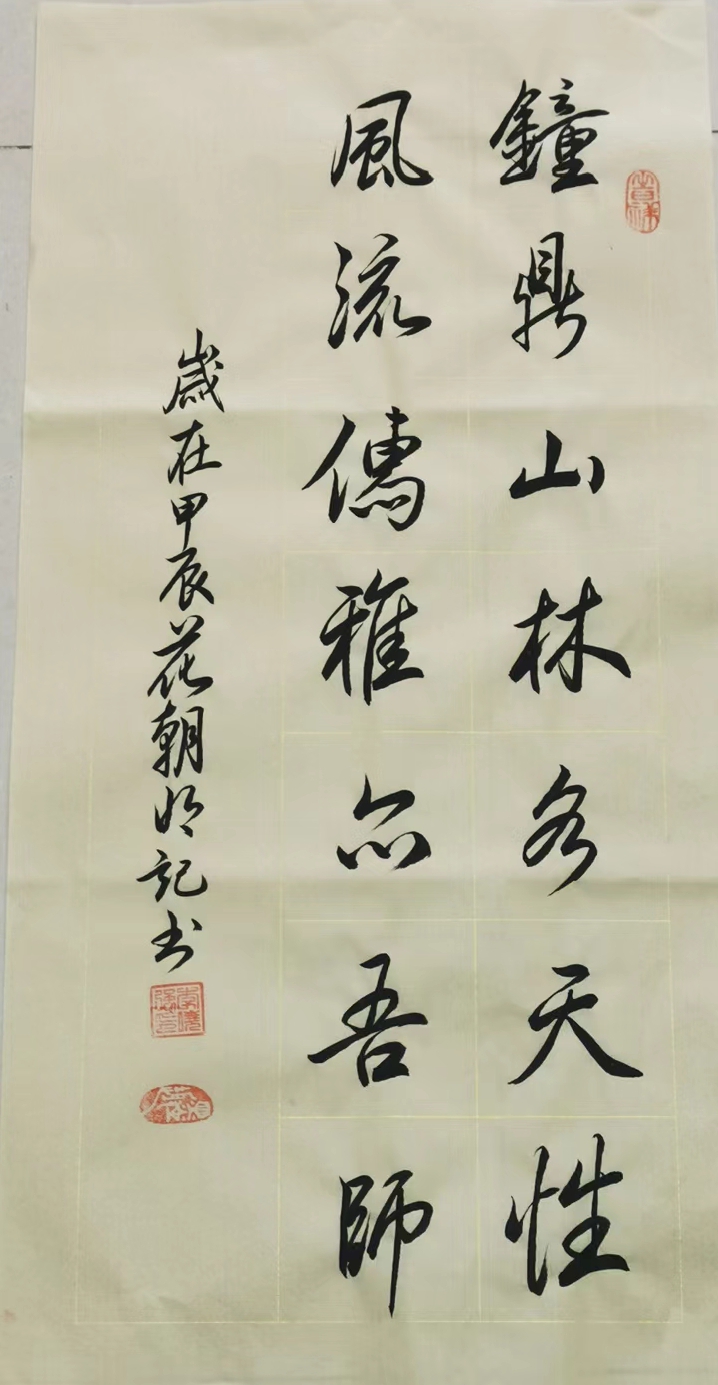 鐘鼎山林各天性
風流儒雅亦吾師
歲在甲辰花朝記書